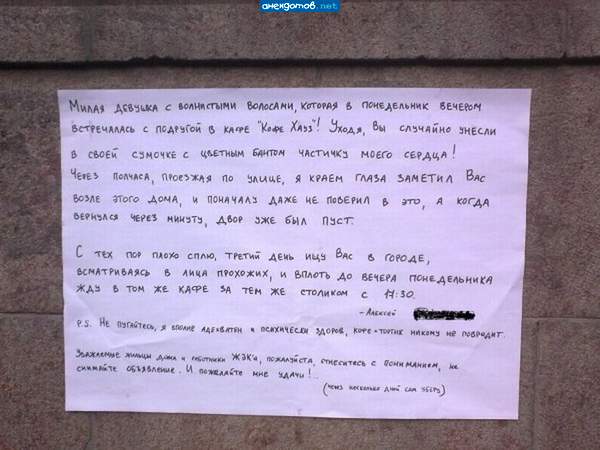 анекдотов.net
Милая девушка с волнистыми волосами, которая в понедельник вечером
встречалась с подругой в кафе "Кофе Хауз"! Уходя, Вы случайно унесли
в своей сумочке с цветным бантом частичку моего сердца!
Через полчаса, проезжая по улице, я краем глаза заметил Вас
возле этого дома, и поначалу даже не поверил в это, а когда
вернулся через минуту, двор уже был пуст.
С тех пор плохо сплю, третий день ищу Вас в городе,
всматриваясь в лица прохожих, и вплоть до вечера понедельника
жду в том же кафе за тем же столиком с 17:30.
- Алексей
P.S. Не пугайтесь, я вполне адекватен и психически здоров, кофе+тортик никому не повредит.
Уважаемые жильцы дома и работники ЖЭК'а, пожалуйста, отнеситесь с пониманием, не
снимайте объявление. И пожелайте мне удачи!..
(через несколько дней сам уберу)